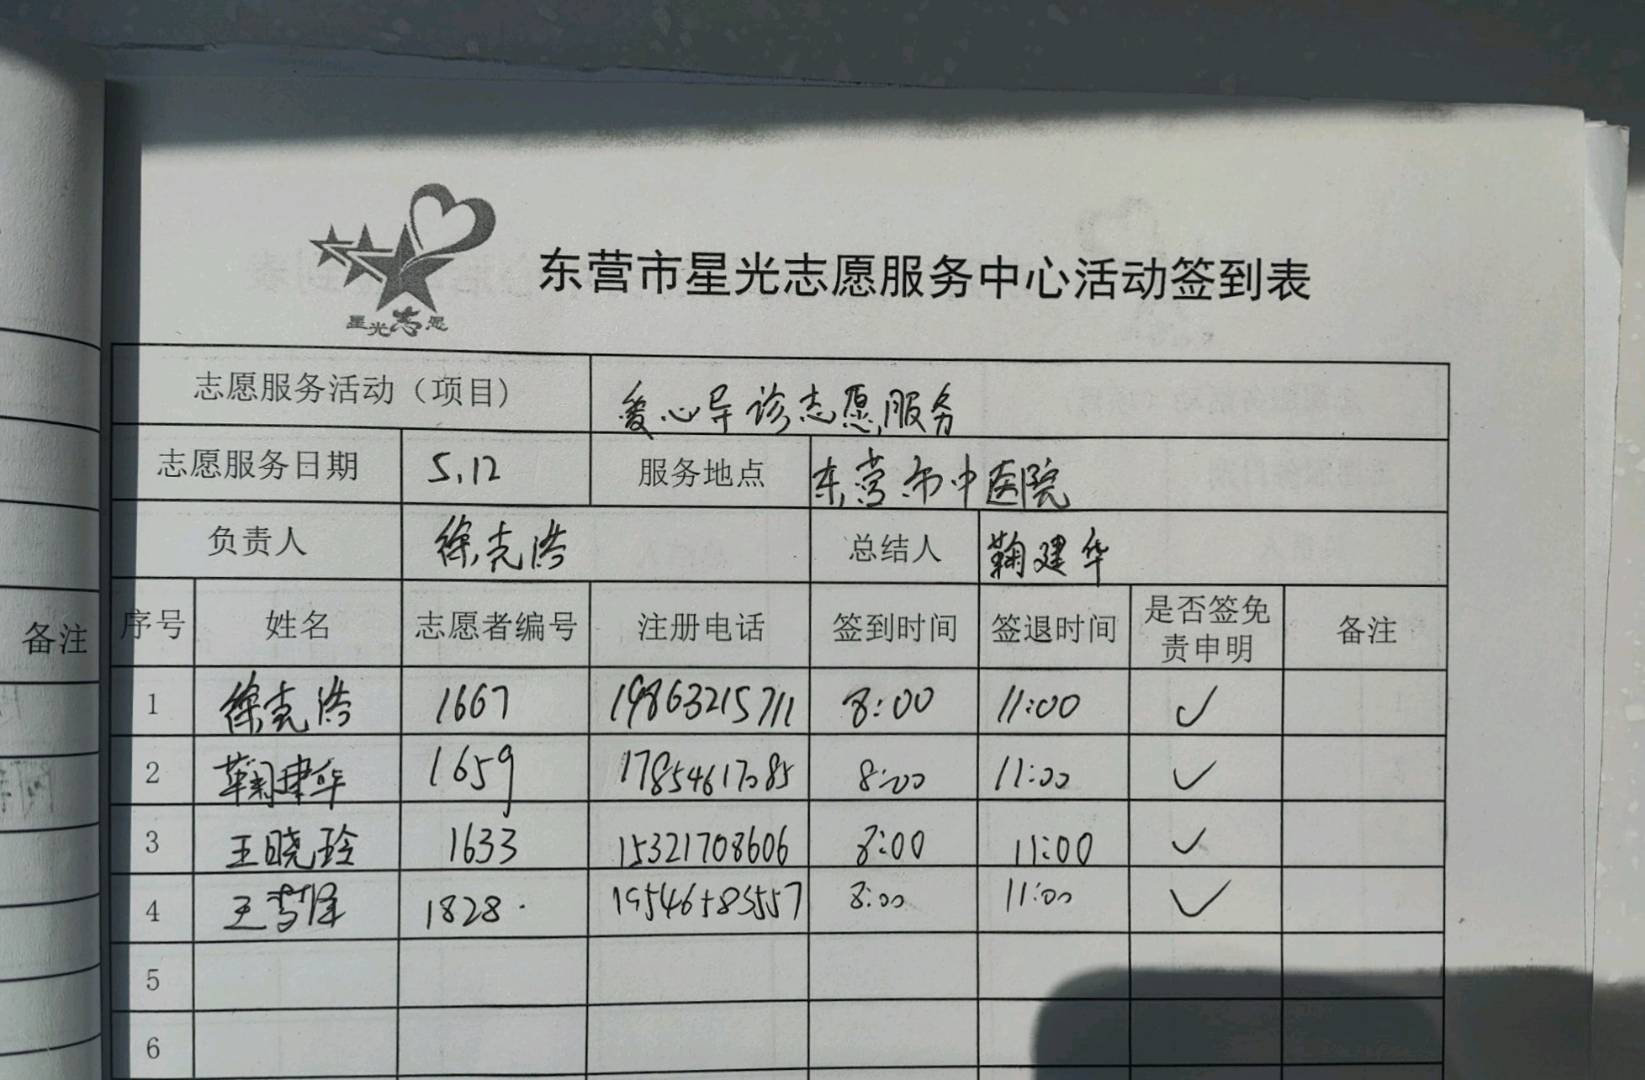 星光志愿
东营市星光志愿服务中心活动签到表
志愿服务活动（项目） 爱心导诊志愿服务
志愿服务日期 5.12 服务地点 东营市中医院
负责人 徐克浩 总结人 鞠建华
备注
序号 姓名 志愿者编号 注册电话 签到时间 签退时间 是否签免责申明 备注
1 徐克浩 1667 19863215711 8:00 11:00 ✓
2 鞠建华 1659 17854617085 8:00 11:00 ✓
3 王晓玲 1633 15321708606 8:00 11:00 ✓
4 王 1828 8:00 11:00 ✓
5
6